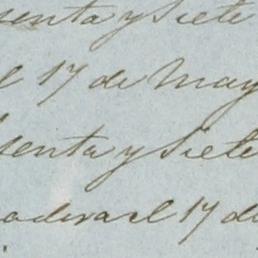 senta y Siete
l 17 de May
senta y Siete
adera el 17 de